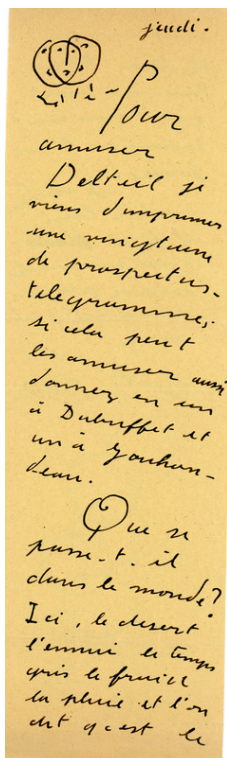 jeudi.
Pour
amuser
Delteil je
viens d'imprimer
une vingtaine
de prospectus-
telegrammes,
si cela peut
les amuser aussi
donnez en un
à Dubuffet et
un à Jouhan-
deau.
Que se
passe-t-il
dans le monde?
Ici, le desert
l'ennui le temps
gris le froid
la pluie et l'on
dit q c'est le